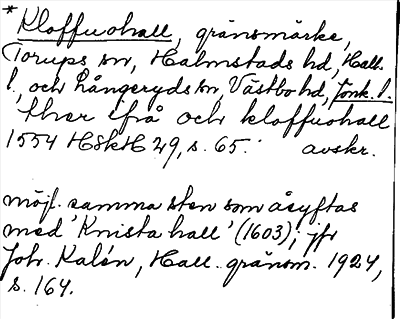 * Kloffuohall, gränsmärke,
Torups sn, Halmstads hd, Hall.
l., och Långeryds sn, Västbo hd, Jönk. l.
thær ifrå och kloffuohall
1554 HSkH 29, s. 65. avskr.
möjl. samma sten som åsyftas
med 'Knista hall' (1603); jfr
Joh. Kalén, Hall. gränsm. 1924,
s. 164.